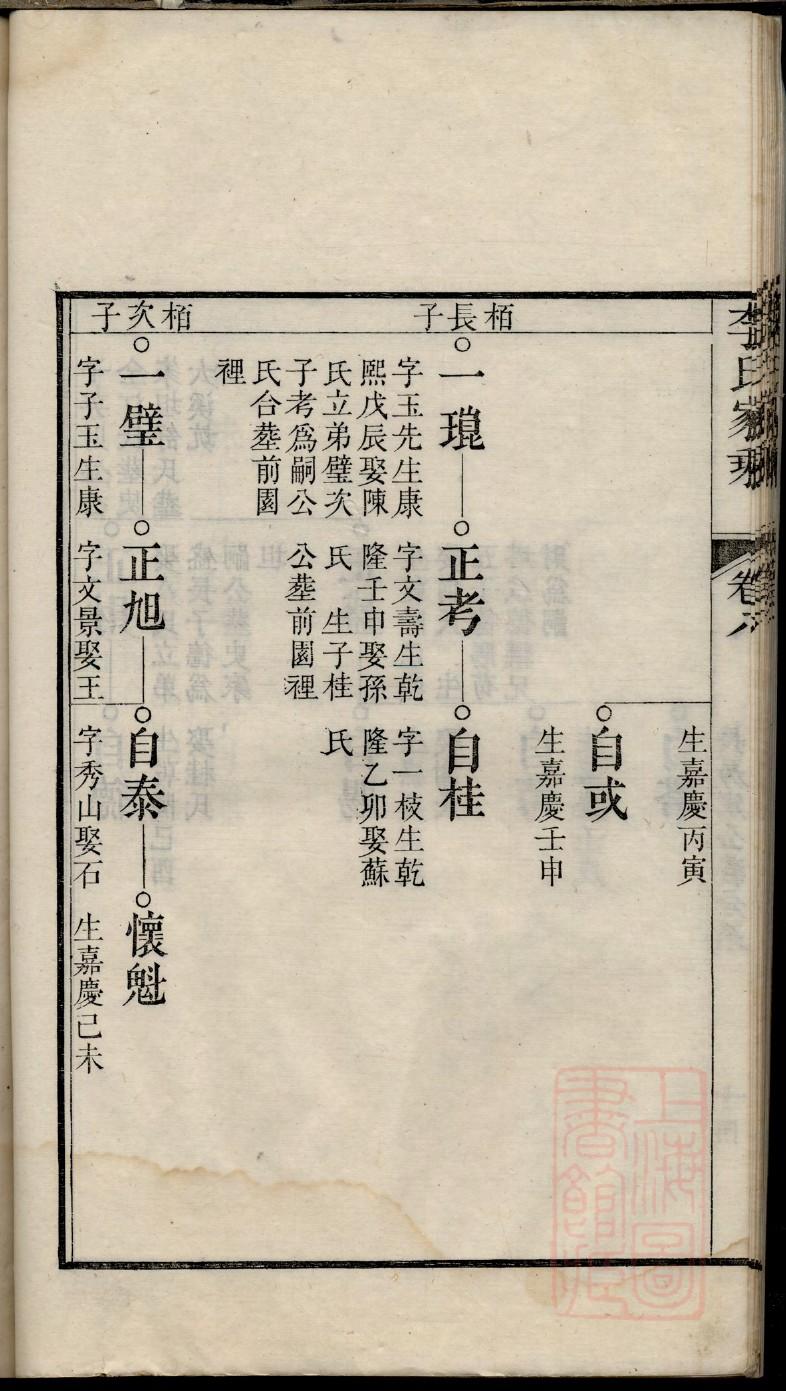 李氏家
卷八
生嘉慶丙寅
自或
生嘉慶壬申
栢長子
一琨
字玉先生康
熙戊辰娶陳
氏立弟璧次
子考為嗣公
氏台塟前園
裡
正考
字文壽生乾
隆壬申娶孫
氏 生子桂
公塟前園裡
自桂
字一枝生乾
隆乙卯娶蘇
氏
栢次子
一璧
字子玉生康
正旭
字文景娶王
自泰
字秀山娶石
懷魁
生嘉慶己未
上海圖
書館藏